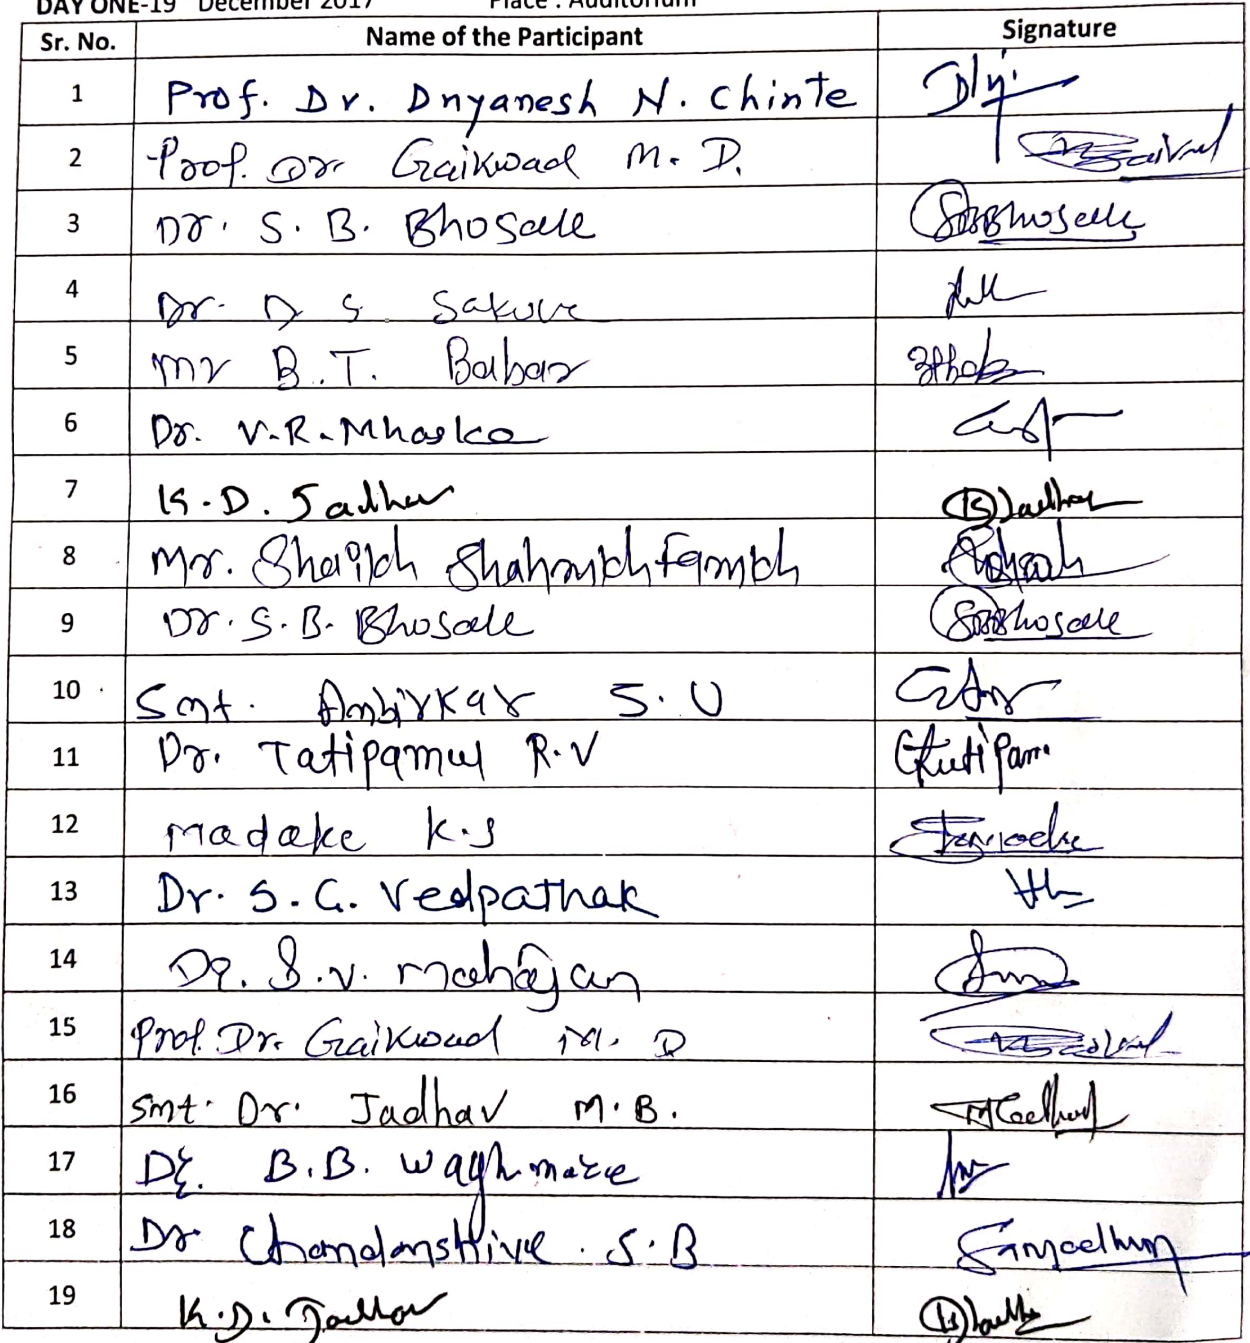 DAY ONE-19 December 2017 Place : Auditorium
Sr. No. Name of the Participant Signature
1 Prof. Dr. Dnyanesh N. Chinte
2 Prof. Dr. Gaikwad M. D.
3 Dr. S. B. Bhosale SBBhosale
4 Dr. D S Sakure
5 Mr B.T. Babar
6 Dr. V.R. Mhaske
7 K.D. Jadhav
8 Mr. Shaikh Shahrukh Farukh
9 Dr. S. B. Bhosale SBBhosale
10 Smt. Ambirkar S. U
11 Dr. Tatipamul R.V
12 Madake K.S
13 Dr. S. G. Vedpathak
14 Dr. S.V. Mahajan
15 Prof. Dr. Gaikwad M. D
16 Smt. Dr. Jadhav M.B.
17 Dr. B.B. Waghmare
18 Dr Chandanshive S.B
19 K.D. Jadhav